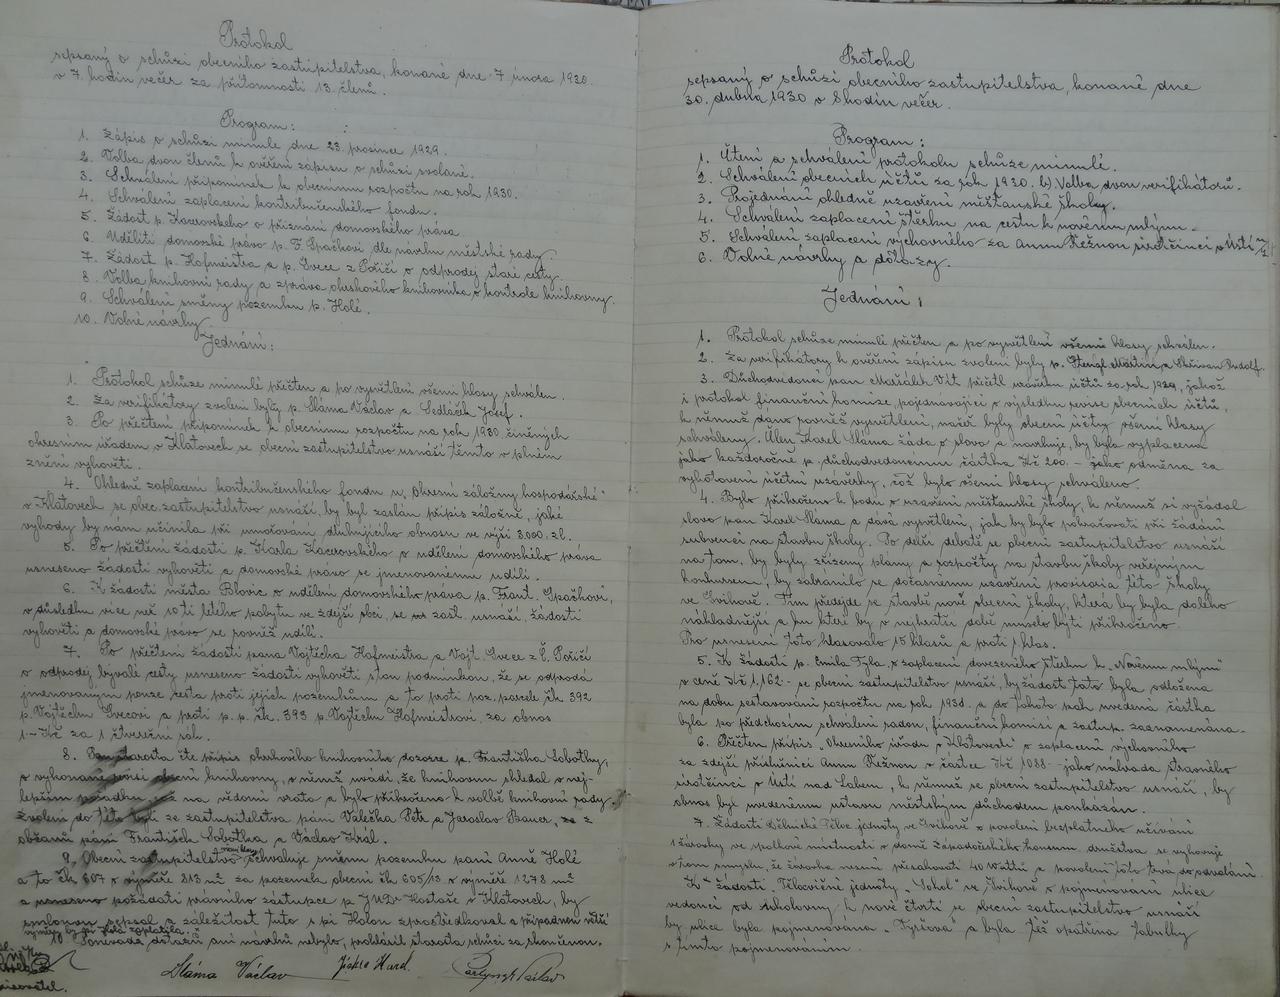 Protokol
sepsaný o schůzi obecního zastupitelstva, konané dne 7. února 1930.
v 7. hodin večer za přítomnosti 13. členů.
Program:
1. Zápis o schůzi minulé dne 23. prosince 1929.
2. Volba dvou členů k ověření zápisu o schůzi svolané.
3. Schválení připomínek k obecnímu rozpočtu na rok 1930.
4. Schválení zaplacení kontribučenského fondu.
5. Žádost p. Kacerovského o přiznání domovského práva.
6. Uděliti domovské právo p. F. Spačkovi dle návrhu městské rady.
7. Žádost p. Hofmeistra a p. Švece z Poříčí o odprodej staré cesty.
8. Volba knihovní rady a zpráva okrskového knihovníka o kontrole knihovny.
9. Schválení směny pozemku p. Holé.
10. Volné návrhy.
Jednání:
1. Protokol schůze minulé přečten a po vysvětlení všemi hlasy schválen.
2. Za verifikátory zvoleni byli p. Sláma Václav a Sedláček Josef.
3. Po přečtení připomínek k obecnímu rozpočtu na rok 1930, činěných
okresním úřadem v Klatovech se obecní zastupitelstvo usnáší těmto v plném
znění vyhověti.
4. Ohledně zaplacení kontribučenského fondu u „Okresní záložny hospodářské"
v Klatovech se obec. zastupitelstvo usnáší, by byl zaslán přípis záložně, jaké
výhody by nám učinila při umořování dlužného obnosu ve výši 3.000.- zl.
5. Po přečtení žádosti p. Karla Kacerovského o udělení domovského práva
usneseno žádosti vyhověti a domovské právo se jmenovanému udílí.
6. K žádosti města Blovic o udělení domovského práva p. Frant. Spačkovi,
v důsledku více než 10ti letého pobytu ve zdejší obci, se zast. usnáší, žádosti
vyhověti a domovské právo se rovněž udílí.
7. Po přečtení žádosti pana Vojtěcha Hofmeistra a Vojt. Švece z Č. Poříčí
o odprodej bývalé cesty usneseno žádosti vyhověti s tou podmínkou, že se odprodá
jmenovaným pouze cesta proti jejich pozemkům a to proti poz. parcele čk. 392
p. Vojtěchu Švecovi a proti p. p. čk. 393 p. Vojtěchu Hofmeistrovi, za obnos
1.- Kč za 1 čtvereční sáh.
8. Pan starosta čte přípis okrskového knihovního dozorce p. Františka Sobotky,
o vykonané revisi obecní knihovny, v němž uvádí, že knihovnu shledal v nej-
lepším pořádku, což na vědomí vzato a bylo přikročeno k volbě knihovní rady.
Zvoleni do této byli ze zastupitelstva páni Valečka Petr a Jaroslav Bauer, z
občanů páni František Sobotka a Václav Král.
9. Obecní zastupitelstvo schvaluje směnu pozemku paní Anně Holé
a to čk. 607 o výměře 813 m² za pozemek obecní čk. 605/13 o výměře 1278 m²
a usneseno požádati právního zástupce p. JUDr Kostaře v Klatovech, by
smlouvu sepsal a záležitost tuto s pí Holou zprostředkoval a případnou větší
výměru by pí Holá zaplatila.
10. Poněvadž dotazů ani návrhů nebylo, prohlásil starosta schůzi za skončenou.
Sláma Václav
Protokol
sepsaný o schůzi obecního zastupitelstva, konané dne
30. dubna 1930 o 8 hodin večer.
Program:
1. Čtení a schválení protokolu schůze minulé.
2. Schválení obecních účtů za rok 1930. b) Volba dvou verifikátorů.
3. Projednání ohledně uzavření měšťanské školy.
4. Schválení zaplacení štěrku na cestu k novému mlýnu.
5. Schválení zaplacení výchovného za Annu Řežnou sirotčinci v Ústí n/L.
6. Volné návrhy a dotazy.
Jednání:
1. Protokol schůze minulé přečten a po vysvětlení všemi hlasy schválen.
2. Za verifikátory k ověření zápisu zvoleni byli p. Stengl Martin a Skřivan Rudolf.
3. Důchodvedoucí pan Maršálek Vít přečtl uzávěrku účtů za rok 1929, jakož
i protokol finanční komise, pojednávající o výsledku revise obecních účtů,
k němuž dáno rovněž vysvětlení, načež byly obecní účty všemi hlasy
schváleny. Člen Karel Sláma žádá o slovo a navrhuje, by byla vyplacena
jako každoročně p. důchodvedoucímu částka Kč 200.- jako odměna za
vyhotovení účetní uzávěrky, což bylo všemi hlasy schváleno.
4. Bylo přikročeno k bodu o uzavření měšťanské školy, k němuž si vyžádal
slovo pan Karel Sláma a dává vysvětlení, jak by bylo pokračovati při žádání
subvencí na stavbu školy. Po delší debatě se obecní zastupitelstvo usnáší
na tom, by byly zřízeny plány a rozpočty na stavbu školy veřejným
konkursem, by zabránilo se dočasnému uzavření provisoria této školy
ve Švihově. Tím předejde se stavbě nové obecní školy, která by byla daleko
nákladnější a ku které by v nejkratší době muselo býti přikročeno.
Pro usnesení toto hlasovalo 15 hlasů a proti 1 hlas.
5. K žádosti p. Emila Tyla, o zaplacení dovezeného štěrku k „Novému mlýnu"
v ceně Kč 1.162.- se obecní zastupitelstvo usnáší, by žádost tato byla odložena
na dobu sestavování rozpočtu na rok 1931. a do tohoto pak uvedená částka
byla po předchozím schválení radou, finanční komisí a zastup. zaznamenána.
6. Přečten přípis „Okresního úřadu v Klatovech" o zaplacení výchovného
za zdejší příslušnici Annu Řežnou v částce Kč 1088.- jako náhrada stravného
sirotčinci v Ústí nad Labem, k němuž se obecní zastupitelstvo usnáší, by
obnos byl uvedenému ústavu městským důchodem poukázán.
7. Žádosti Dělnické Těloc. jednoty ve Švihově o povolení bezplatného užívání
1 žárovky ve spolkové místnosti v domě Západočeského konsum. družstva se vyhovuje
v tom smyslu, že žárovka nesmí přesahovati 40 wattů a povolení toto trvá do odvolání.
K žádosti Tělocvičné jednoty „Sokol" ve Švihově o pojmenování ulice
vedoucí od sokolovny k nové čtvrti se obecní zastupitelstvo usnáší
by ulice byla pojmenována „Tyršova" a byla též opatřena tabulky
s tímto pojmenováním.